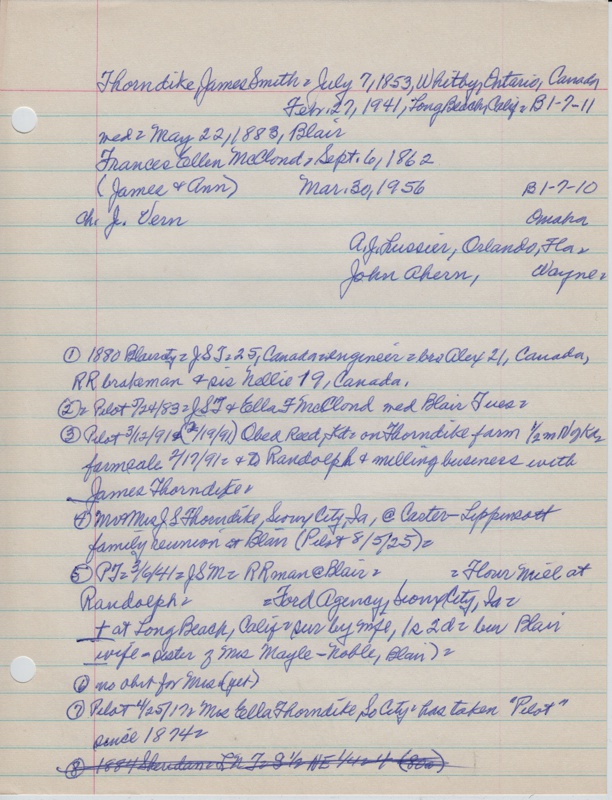 Thorndike, James Smith = July 7, 1853, Whitby, Ontario, Canada
Febr. 27, 1941, Long Beach, Calif = B1-7-11
med = May 22, 1883, Blair
Frances Ellen McClond, Sept. 6, 1862
(James & Ann) Mar. 30, 1956 B1-7-10
ch. J. Vern Omaha
A.J. Lussier, Orlando, Fla =
John Ahern, Wayne =
① 1880 Blair cty = JST = 25, Canada = engineer = bro Alex 21, Canada,
RR brakeman & sis Nellie 19, Canada.
② = Pilot 5/24/83 = JST & Ella F McClond med Blair Tues =
③ Pilot 3/12/91 & (2/19/91) Obed Reed, Kd = on Thorndike farm 1/2 m N of Kd,
farm sale 2/17/91 = & to Randolph & milling business with
James Thorndike =
④ Mr & Mrs J S Thorndike, Sioux City, Ia, @ Carter-Lippincott
family reunion at Blair (Pilot 8/5/25) =
⑤ PT = 3/6/41 = JSM = RR man @ Blair = = Flour Mill at
Randolph = = Ford Agency, Sioux City, Ia =
† at Long Beach, Calif = sur by wife, 1s 2d = bur Blair
wife - sister of Mrs Mayle - Noble, Blair) =
⑥ no obit for Mrs (yet)
⑦ Pilot 4/25/17 = Mrs Ella Thorndike, So City = has taken "Pilot"
since 1874 =
⑧ 1884 Sheridan = T = S 1/2 NE 1/4 = 4 (80a)